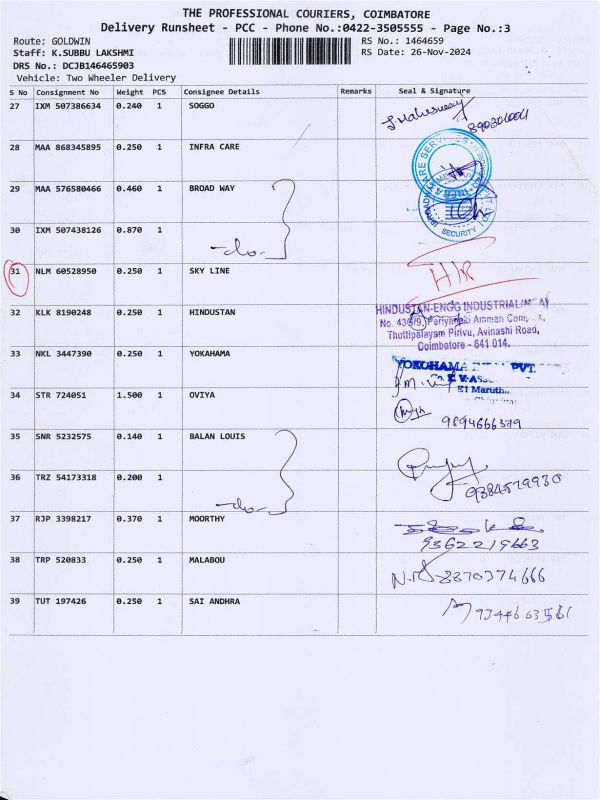 THE PROFESSIONAL COURIERS, COIMBATORE
Delivery Runsheet - PCC - Phone No.:0422-3505555 - Page No.:3
Route: GOLDWIN RS No.: 1464659
Staff: K.SUBBU LAKSHMI RS Date: 26-Nov-2024
DRS No.: DCJB146465903
Vehicle: Two Wheeler Delivery
S No Consignment No Weight PCS Consignee Details Remarks Seal & Signature
27 IXM 507386634 0.240 1 SOGGO
28 MAA 868345895 0.250 1 INFRA CARE
29 MAA 576580466 0.460 1 BROAD WAY
30 IXM 507438126 0.870 1 -do-
SECURITY
31 NLM 60528950 0.250 1 SKY LINE
32 KLK 8190248 0.250 1 HINDUSTAN
HINDUSTAN-ENGG INDUSTRIAL
Thottipalayam Pirivu, Avinashi Road,
Coimbatore - 641 014.
33 NKL 3447390 0.250 1 YOKAHAMA
YOKOHAMA PVT.
34 STR 724051 1.500 1 OVIYA
9894666379
35 SNR 5232575 0.140 1 BALAN LOUIS
36 TRZ 54173318 0.200 1 -do-
37 RJP 3398217 0.370 1 MOORTHY
9362219663
38 TRP 520833 0.250 1 MALABOU
8870374666
39 TUT 197426 0.250 1 SAI ANDHRA